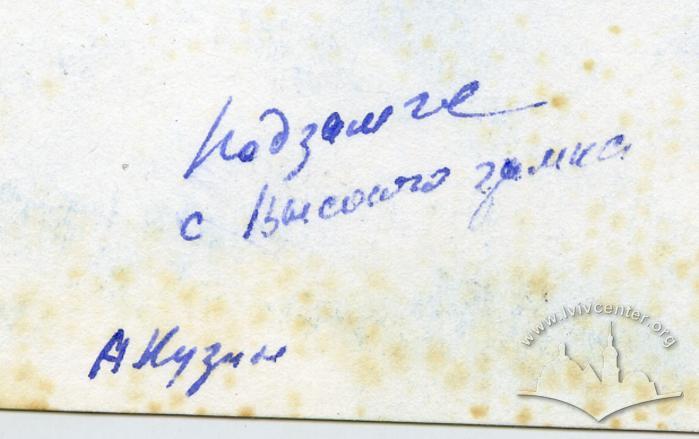 Подзамче
с Высокого замка
А Кузин
www.lvivcenter.org